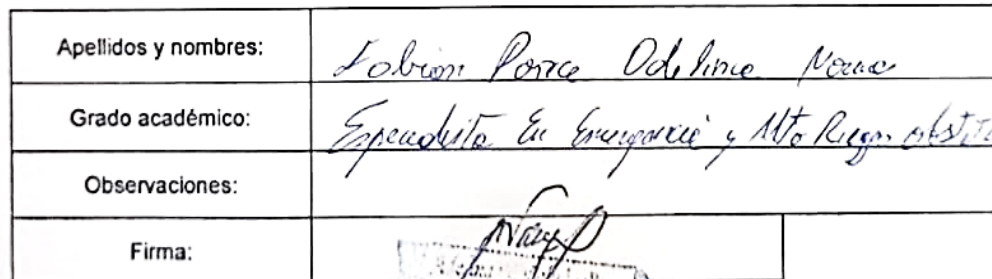 Apellidos y nombres: Fabian Ponce Odelina Norma
Grado académico: Especialista En Emergencia y Alto Riesgo obst
Observaciones:
Firma: